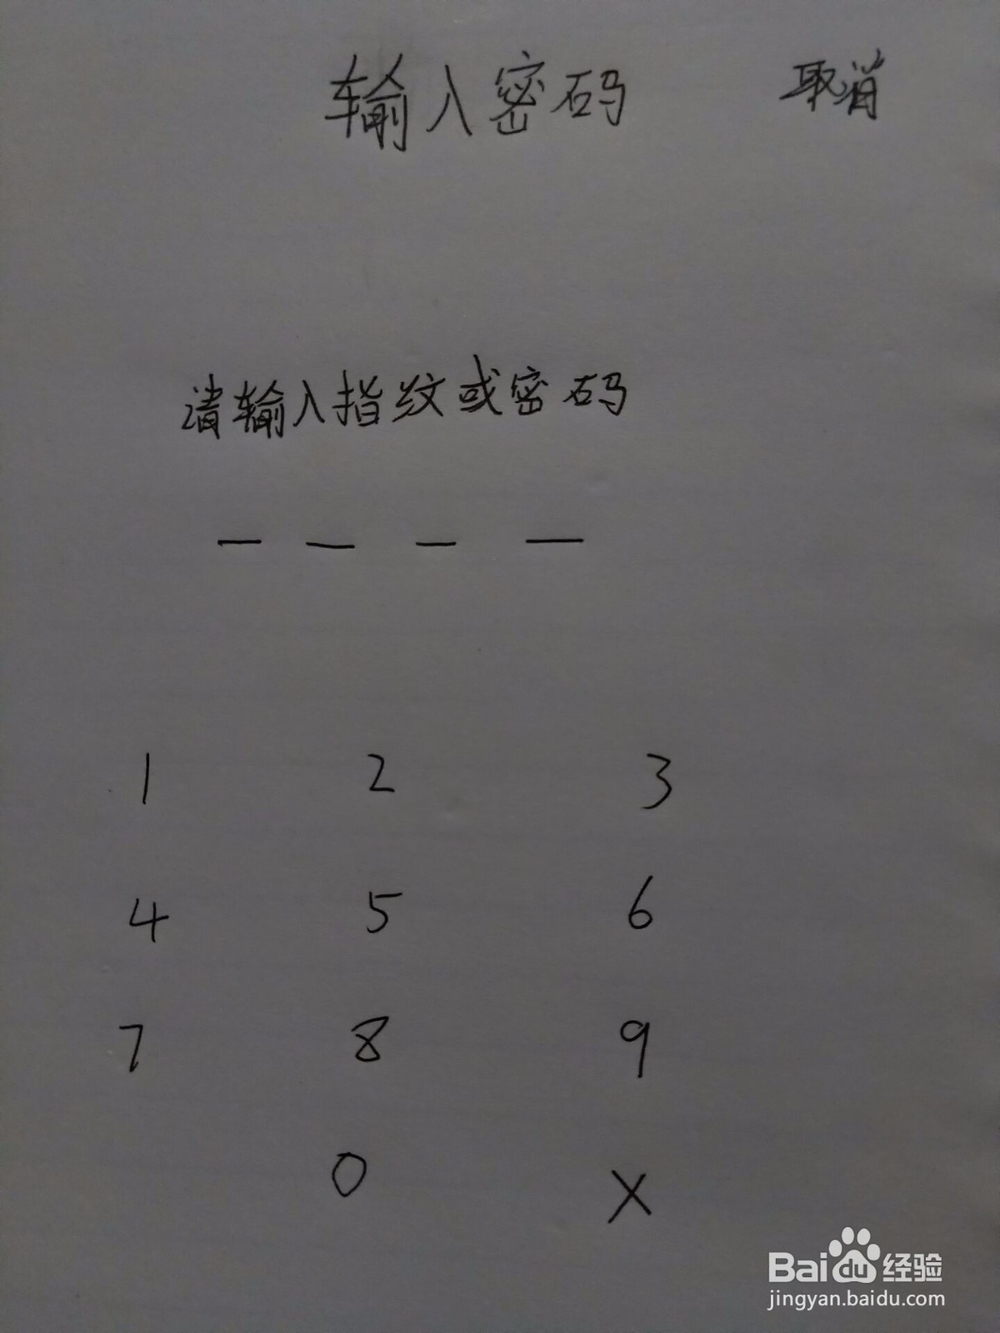 输入密码 取消
请输入指纹或密码
— — — —
1 2 3
4 5 6
7 8 9
0 X
Baidu经验
jingyan.baidu.com